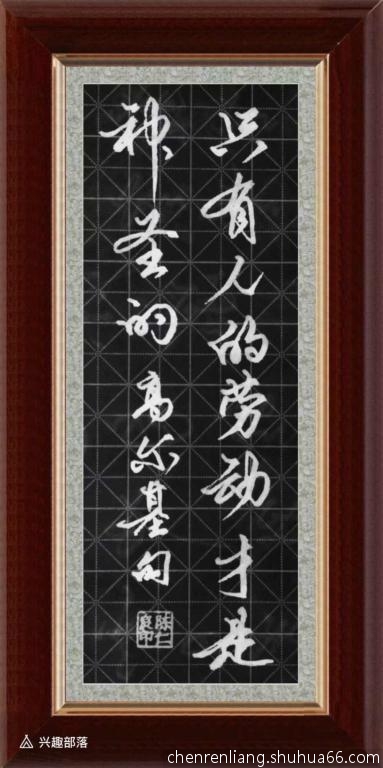 只有人的劳动才是
神圣的 高尔基句
兴趣部落
chenrenliang.shuhua66.com